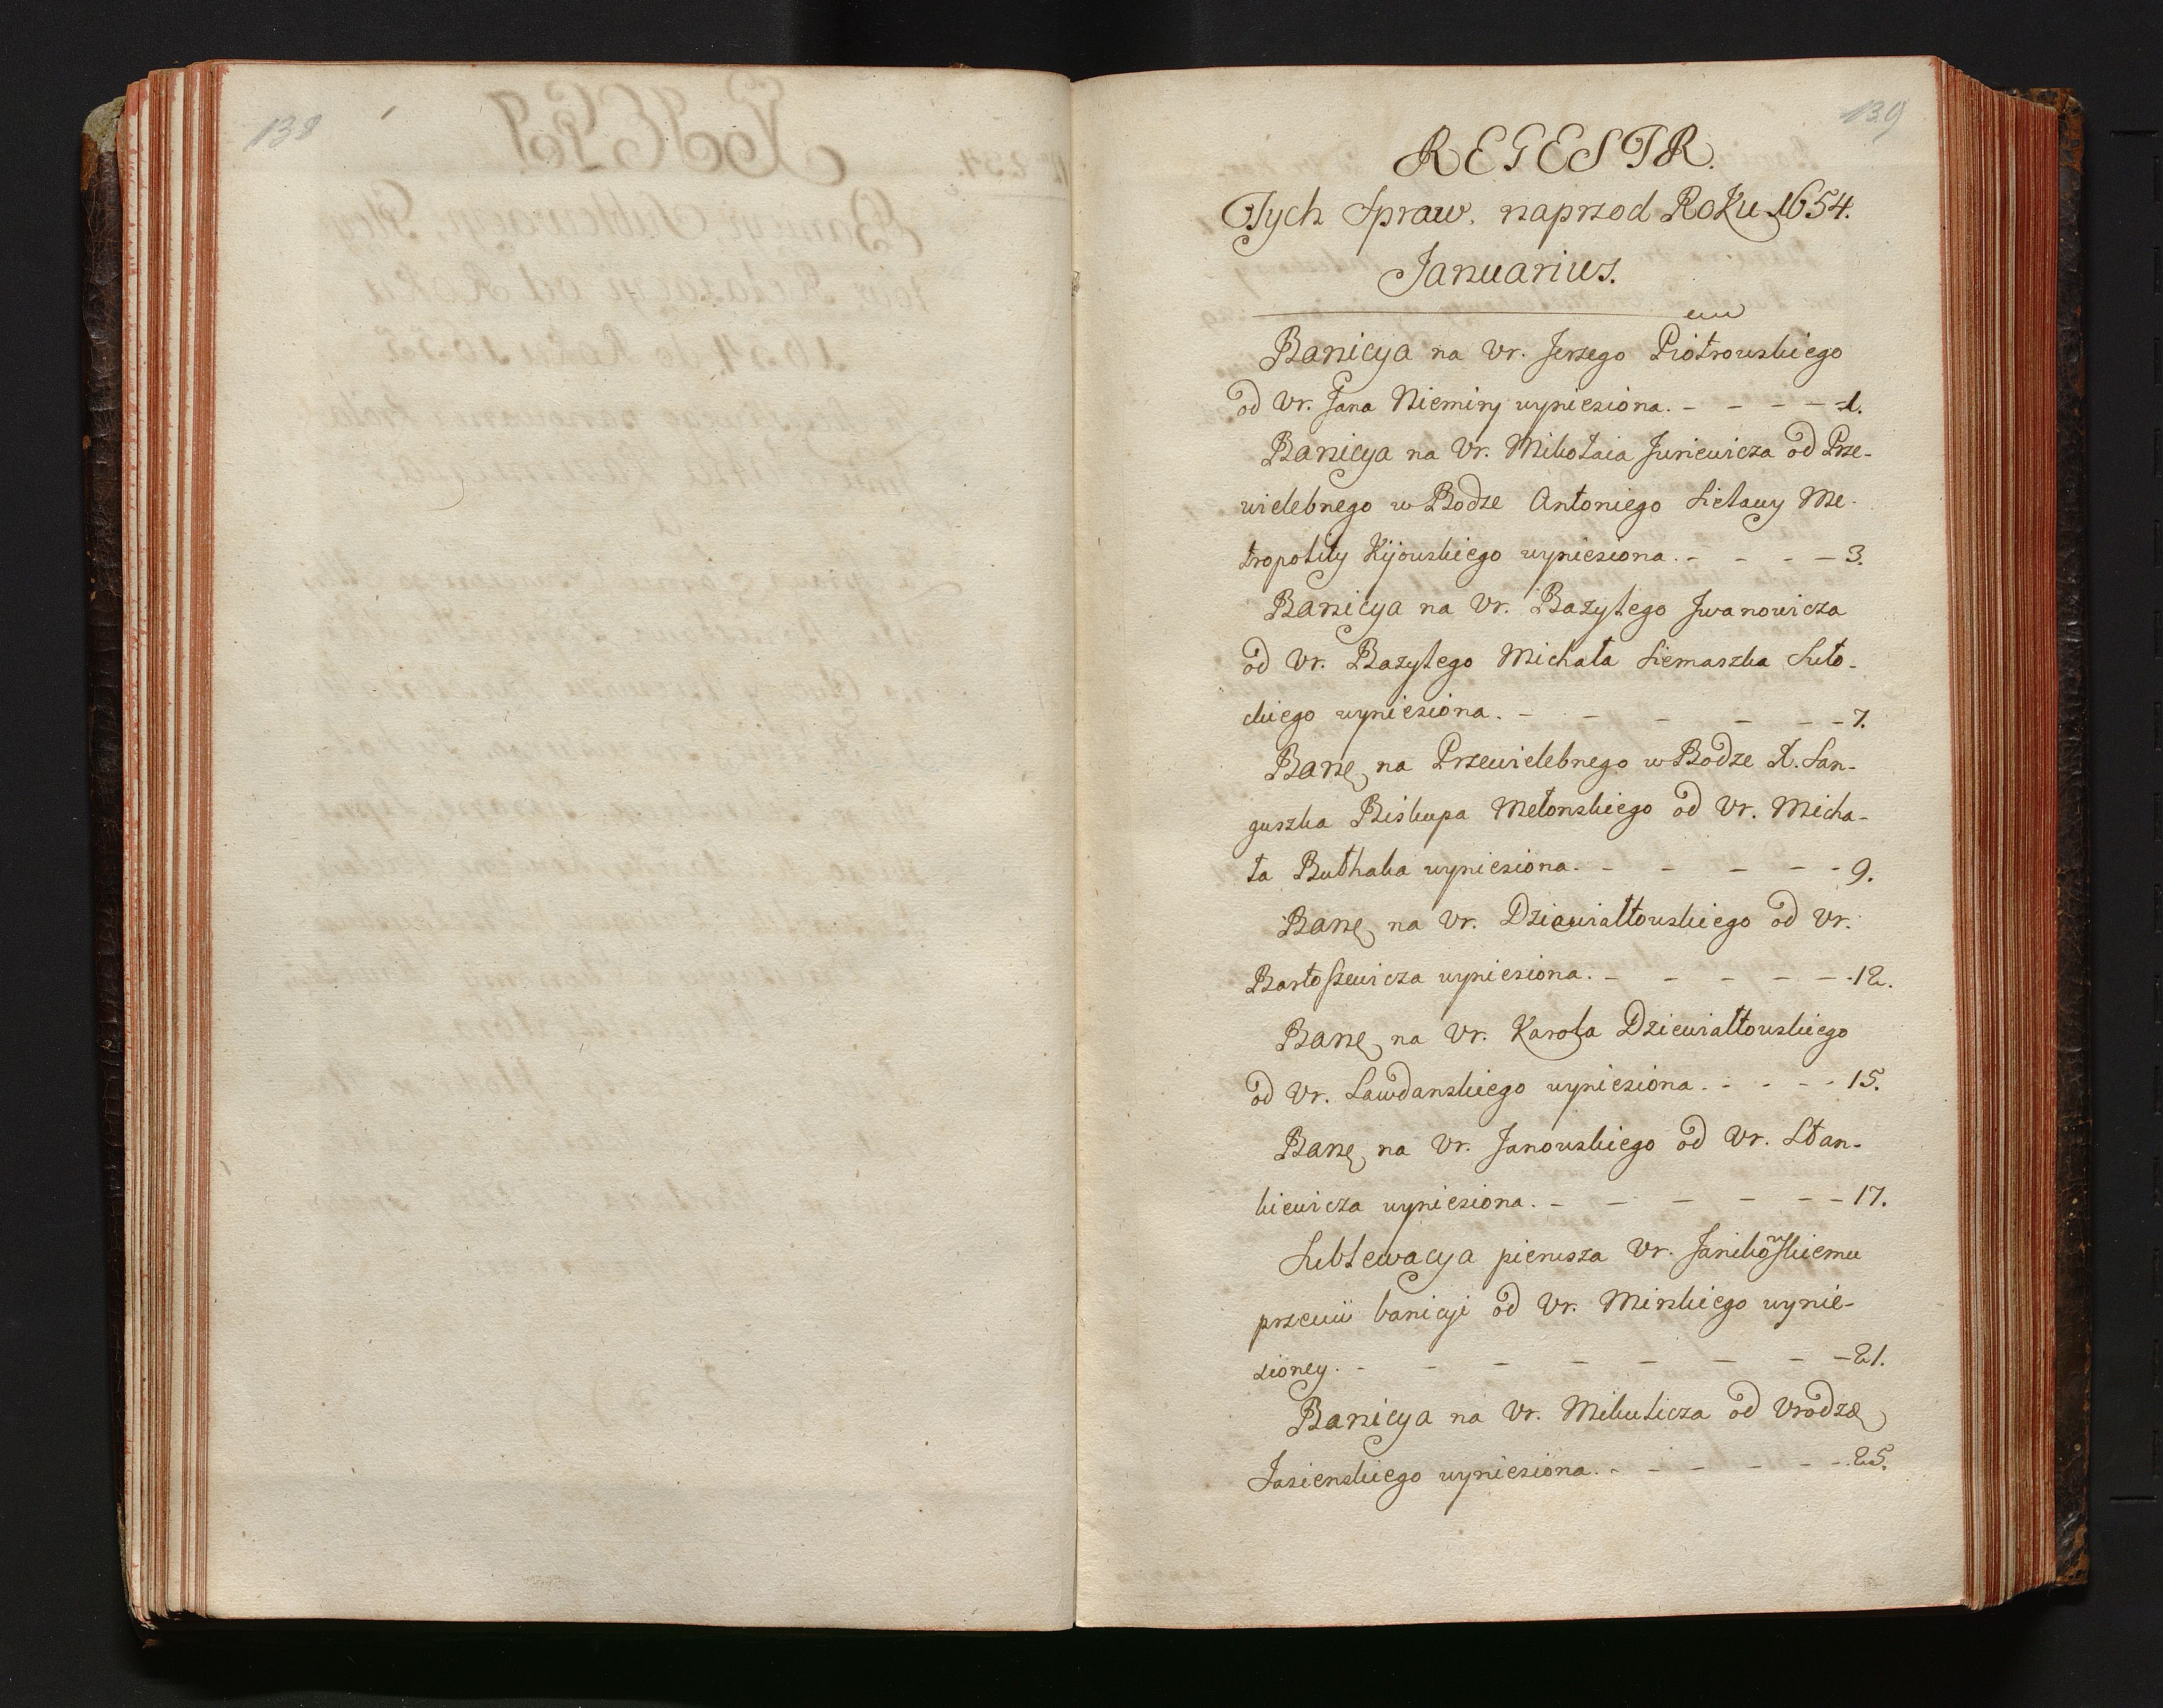 138
139
REGESTR.
Tych Spraw. naprzod Roku 1654.
Januarius.
Banicya na Vr. Jerzego Piotrowskiego
od Vr. Jana Niemiry wyniesiona. - - - - - 1.
Banicya na Vr. Mikołaia Juriewicza od Prze-
wielebnego w Bodze Antoniego Sielawy Me-
tropolity Kijowskiego wyniesiona. - - - - 3.
Banicya na Vr. Bazylego Jwanowicza
od Vr. Bazylego Michała Siemaszka Suło-
ckiego wyniesiona. - - - - - - 7.
Bane na Przewielebnego w Bodze X. San-
guszka Biskupa Metonskiego od Vr. Micha-
ła Buthaka wyniesiona. - - - - - 9.
Bane na Vr. Dziewiałtowskiego od Vr.
Bartoszewicza wyniesiona. - - - - - 12.
Bane na Vr. Karola Dziewiałtowskiego
od Vr. Lawdanskiego wyniesiona. - - - - 15.
Bane na Vr. Janowskiego od Vr. Stan-
kiewicza wyniesiona. - - - - - - 17.
Sublewacya pierwsza Vr. Janikowskiemu
przeciw banicyi od Vr. Mirskiego wynie-
sioney. - - - - - - - - 21.
Banicya na Vr. Mikulicza od Vrodze
Jasienskiego wyniesiona. - - - - - 25.